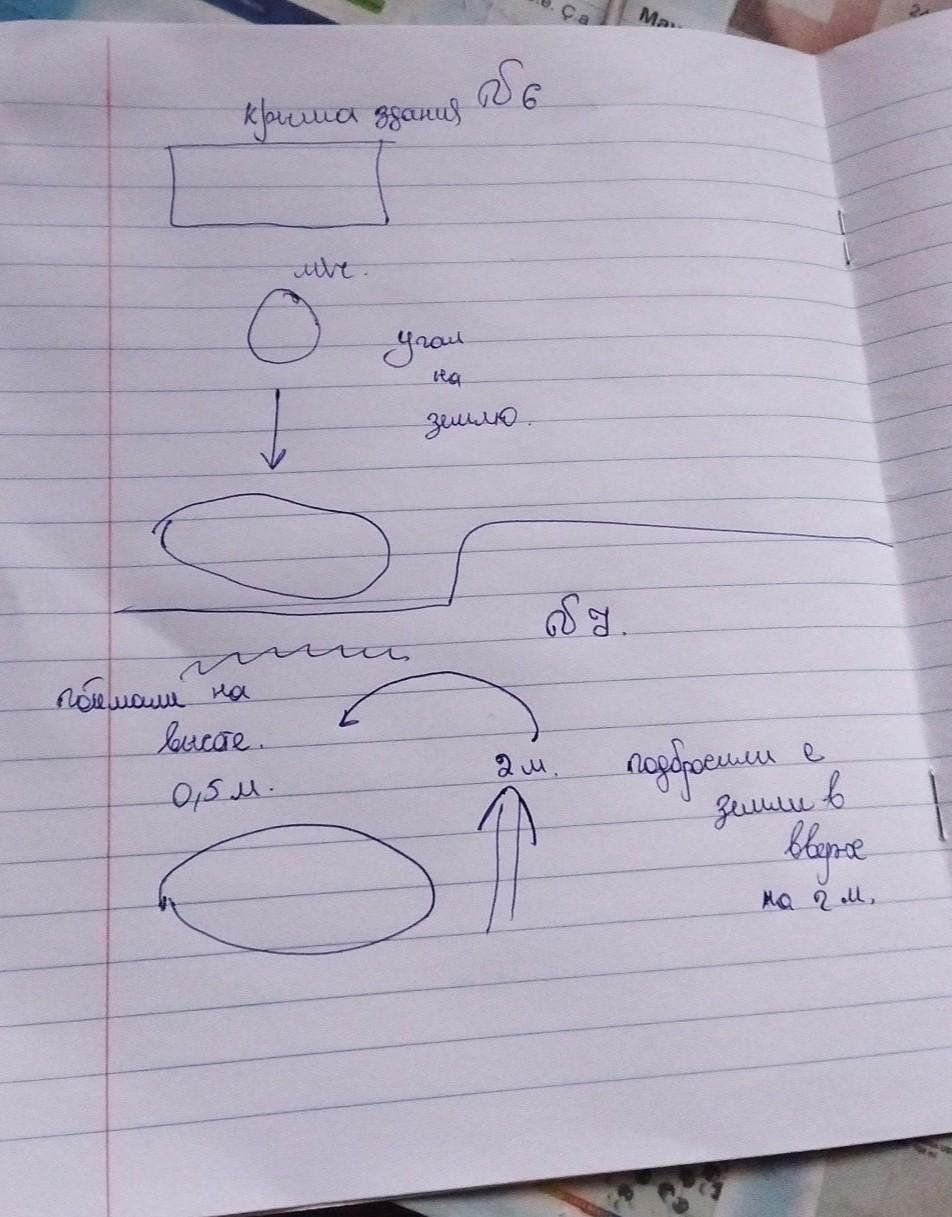 №6
крыша здания
мяч.
упал
на
землю.
№7.
поймали на
высоте.
0,5 м.
2 м.
подбросили с
земли в
вверх
на 2 м.